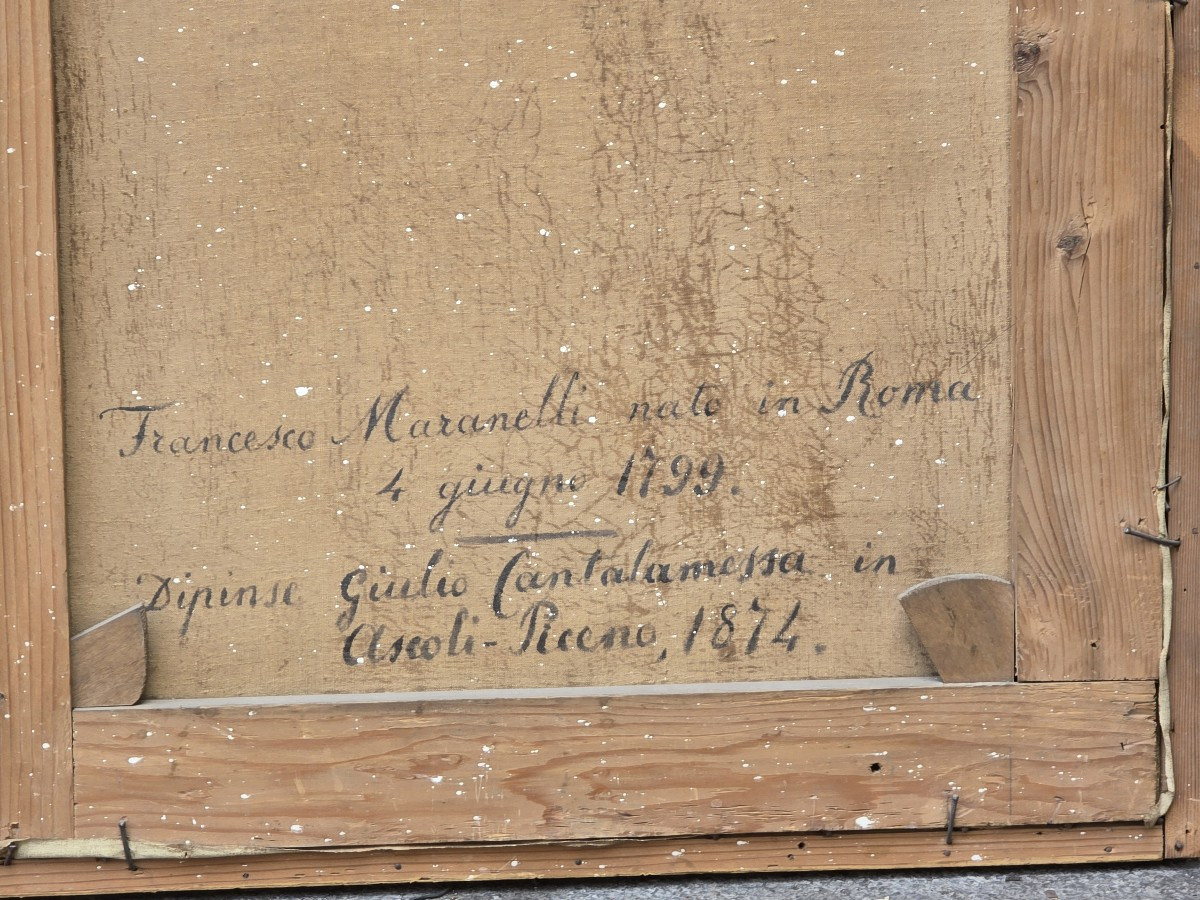 Francesco Maranelli nato in Roma
4 giugno 1799.
Dipinse Giulio Cantalamessa in
Ascoli-Piceno, 1874.